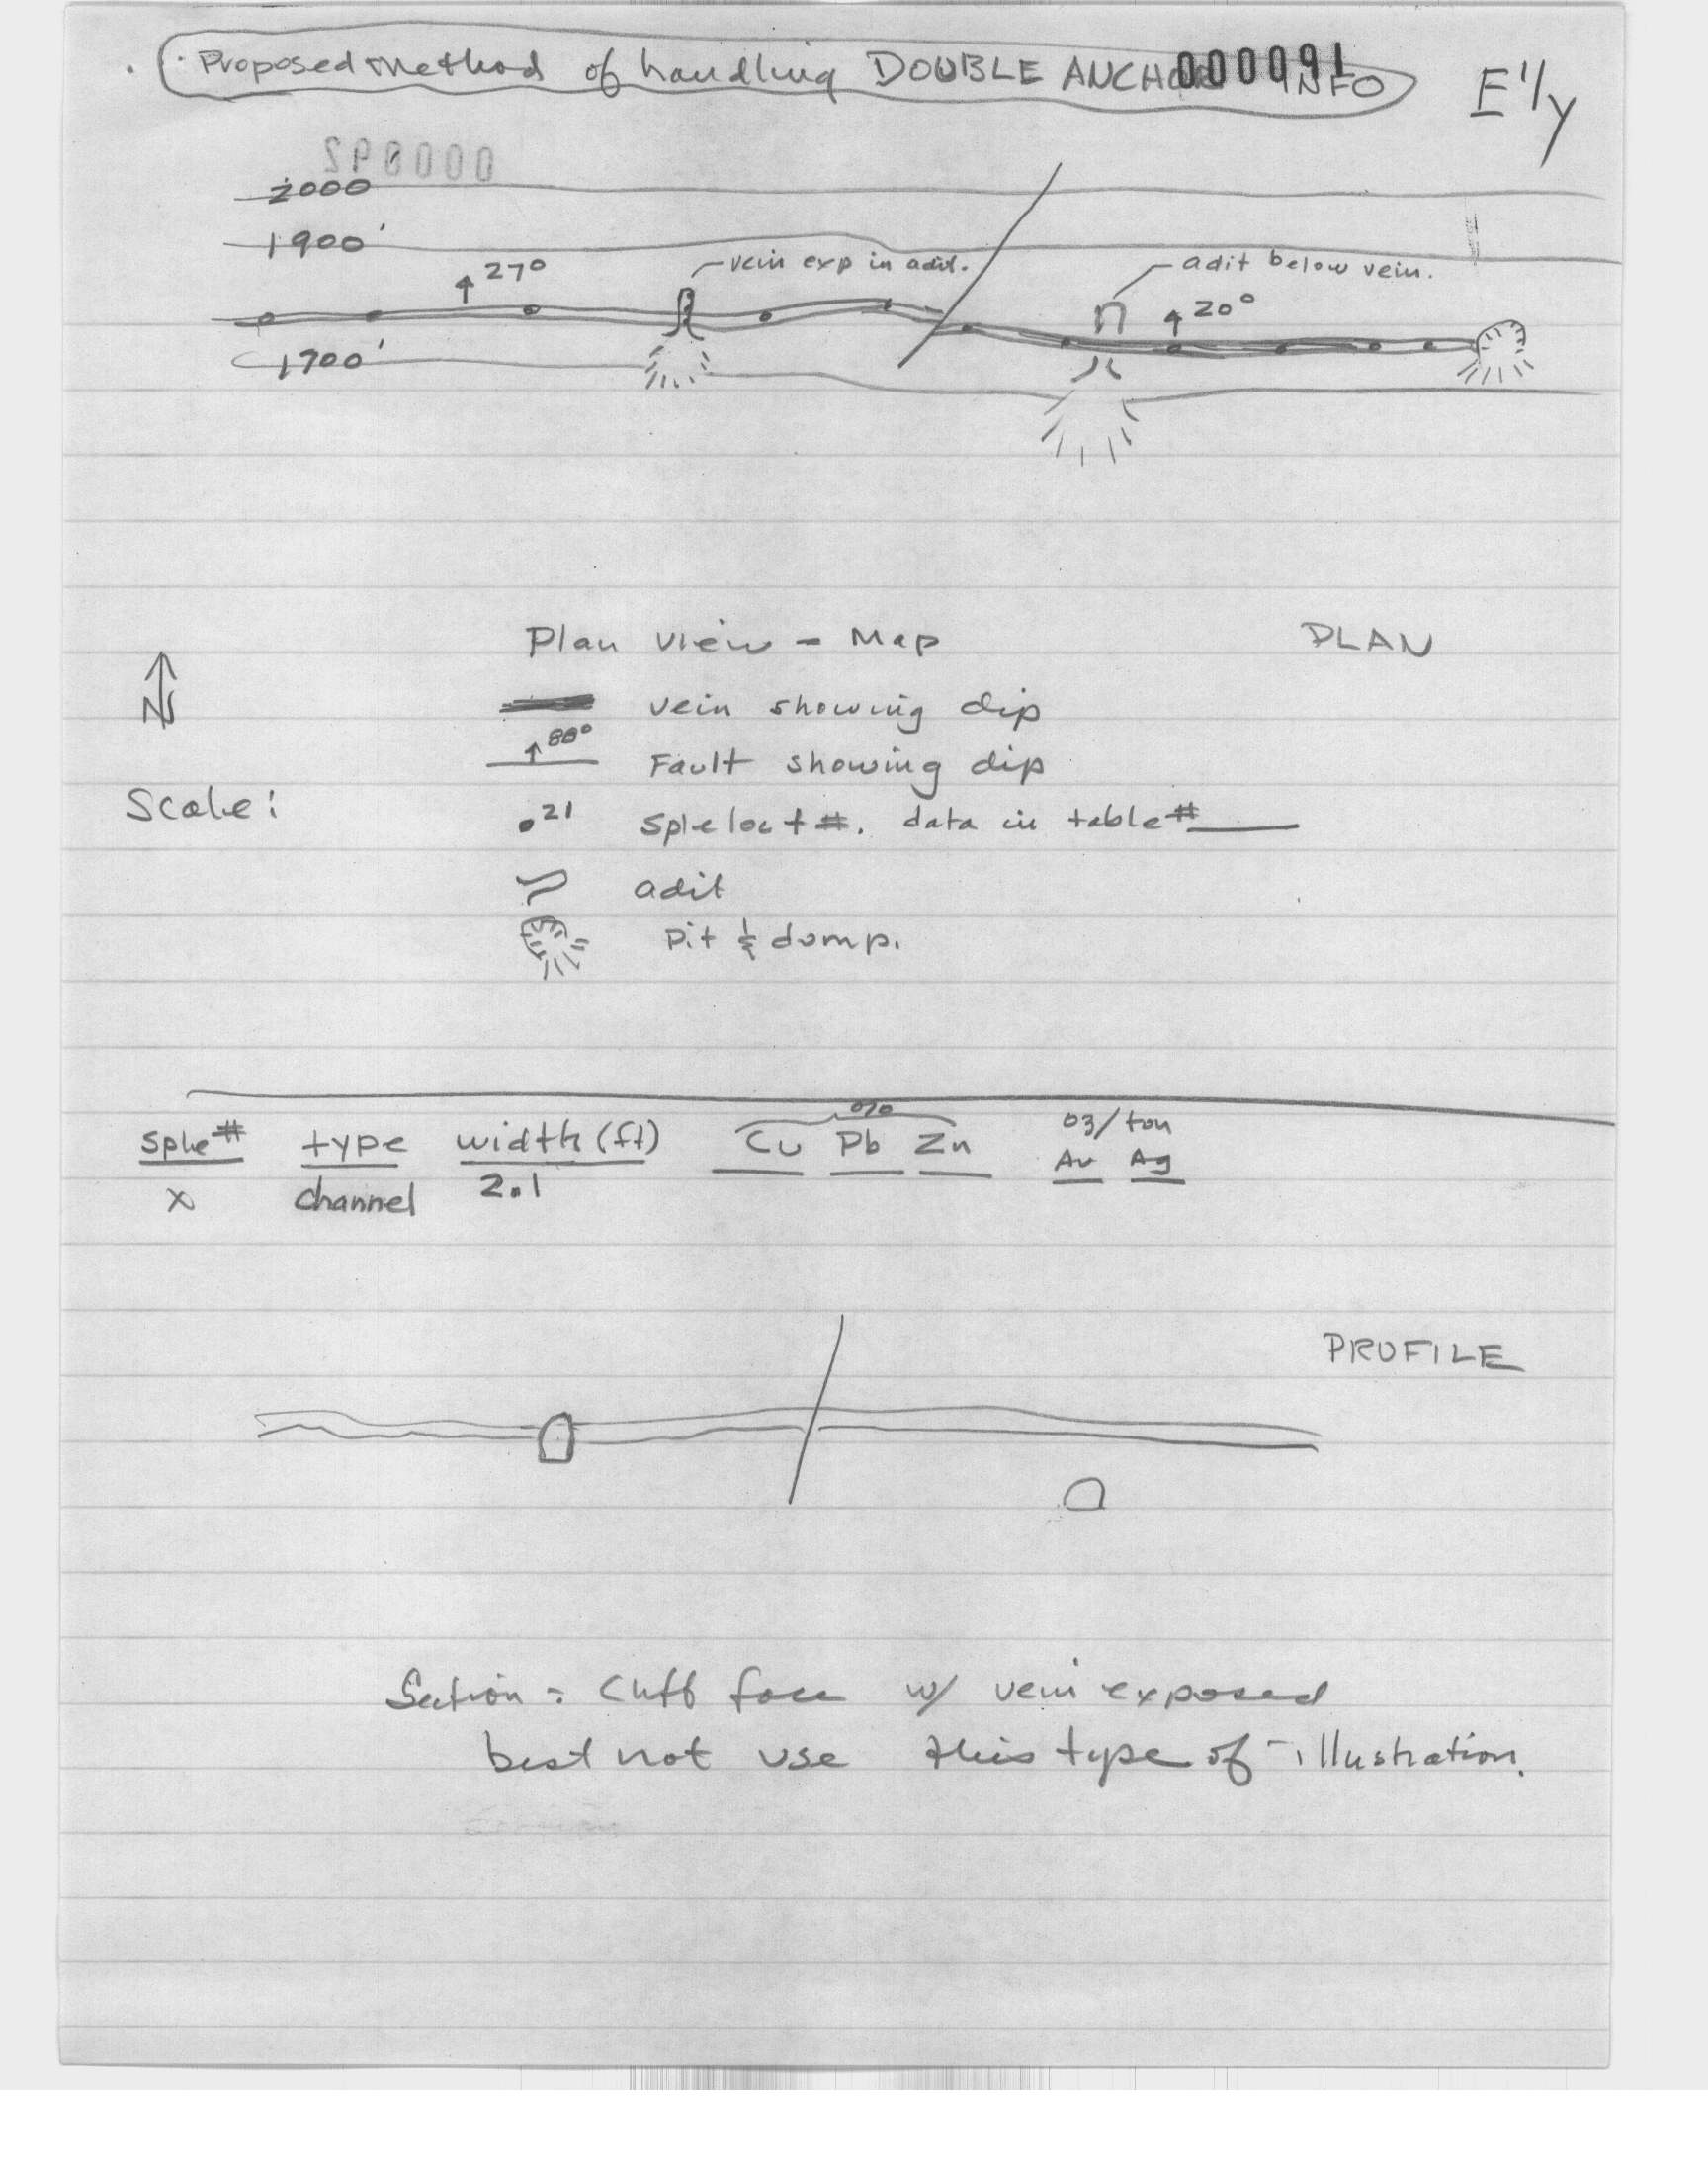 Proposed method of handling DOUBLE ANCHOR INFO
000091
E'ly
000092
2000
1900'
27°
vein exp in adit.
adit below vein.
20°
1700'
Plan view - Map
PLAN
N
vein showing dip
80°
Fault showing dip
Scale:
21
Sple loc + #. data in table #
adit
pit & dump.
%
Sple # type width (ft) Cu Pb Zn oz/ton
Au Ag
x channel 2.1
PROFILE
Section = Cliff face w/ vein exposed
best not use this type of illustration.